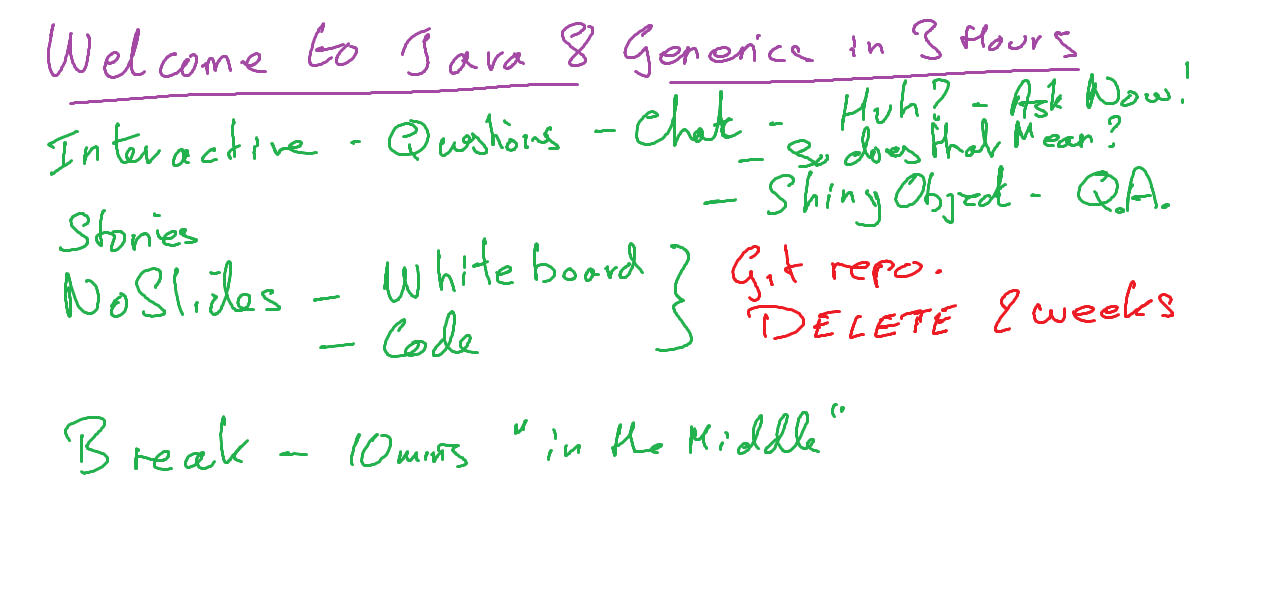 Welcome to Java 8 Generics in 3 Hours
Interactive - Questions - Chat - Huh? - Ask Now!
- So does that Mean?
- Shiny Object - Q.A.
Stories
No Slides - Whiteboard } Git repo.
- Code DELETE 2 weeks
Break - 10 mins "in the Middle"